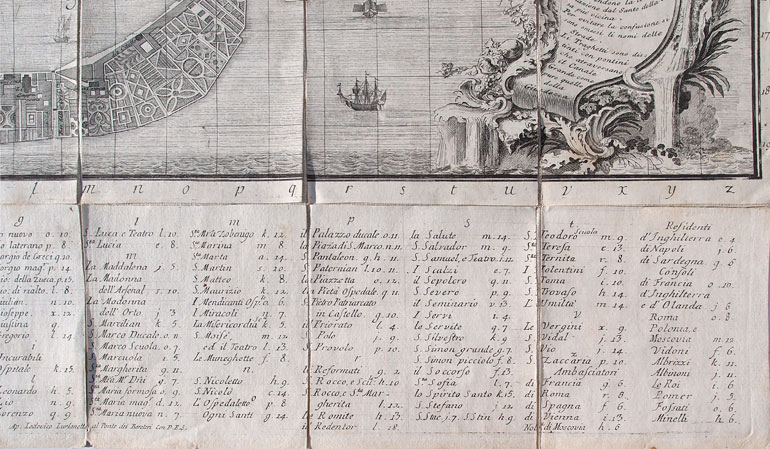 rendono la
nazione dal Santo della
più vicina
evitare la confusione si
omessi li nomi delle
Strade.
Traghetti sono di
tinti con pontini
che atraversano
il Canale
Grande
17
18
19
l m n o p q r s t u v x y z
g
nuovo o. 10.
laterano p. 8.
Giorgio de Greci q. 10.
Giorgio mag. p. 14.
della Zueca p. 15.
di rialto l. 8.
n. 10.
n. 12.
n. 7.
l. 14.
i
Incurabili
Ospitale k. 15.
l
Leonardo h. 5.
n. 9.
Lorenzo q. 9.
l
S. Luca e Teatro l. 10.
Sta Lucia e. 8.
m
La Maddalena j. 5.
La Madonna
dell'Arsenal s. 10.
La Madonna
dell'Orto j. 3
S. Marcilian k. 5.
S. Marco Ducale o. 11.
S. Marco Scuola o. 7.
S. Marcuola i. 5.
Sta Margherita g. 11.
Sta Ma M. Dni g. 7.
Sta Maria formosa o. 9.
Sta Maria mag. d. 12.
Sta Maria nuova n. 7.
m
Sta Ma Zobenigo k. 12.
Sta Marina m 8
Sta Marta a. 14
S. Martin s. 10
S. Matteo k. 8
S. Maurizio k. 12
I Mendicanti o. 6
I Miracoli n. 7
La Misericordia k. 5.
S. Moisè m. 12
ed il Teatro l. 13
le Muneghette f. 8.
n
S. Nicoletto h. 9.
S. Nicolò c. 14
L'Ospedaletto p. 8
Ogni Santi g. 14
p
il Palazzo ducale o. 11.
la Piaza di S. Marco n. 11.
S. Pantaleon g. h. 11.
S. Paternian l. 10. 11.
la Piazzetta o. 12.
la Pietà Ospedale q. 11.
S. Pietro Patriarcato
in Castello y. 10.
il Priorato l. 4
S. Polo j. 9.
S. Provolo p. 10.
r
il Reformati g. 2.
S. Rocco, e Scu. h. 10
S. Rocco, e Sta Mar-
gherita l. 12
le Romite h. 13
il Redentor l. 18.
S
la Salute m. 14.
S. Salvador m. 9.
S. Samuel, e Teatro i. 12.
I Scalzi e. 7.
il Sepolcro q. 11.
S. Severo p. 9.
il Seminario r. 13
I Servi i. 4.
le Servite g. 7.
S. Silvestro k. 9
S. Simon grande g. 7.
S. Simon picciolo f. 8.
il Soccorso f. 13.
Sta Sofia l. 7.
lo Spirito Santo k. 15.
S. Stefano j 12.
S. Stae j. 7. S. Stin h. 9
t
S. Teodoro Scuola m. 9.
Sta Teresa c. 13.
Sta Ternita r. 8
I Tolentini f. 10.
S. Toma i. 10.
S. Trovaso h. 14
L'Umiltà m. 14
v
Le Vergini x 9.
S. Vidal i. 13.
S. Vio j. 14.
S. Zaccaria p. 10.
Ambasciatori
di Francia g. 6
di Roma r. 8
di Spagna f. 6
di Vienna i. 13
Not. di Moscovia h. 6
Residenti
d'Inghilterra e 4
di Napoli j. 6
di Sardegna f. 5
Consoli
di Francia o. 10.
d'Inghilterra
e d'Olanda j. 6
Roma o. 8
Polonia, e
Moscovia m. 12
Vidoni f. 6.
Albrizzi k. 11
Albinoni j. 11
Le Roi i. 6.
Pomer j. 5.
Fossati o. 6
Minelli h. 6.
Ap. Lodovico Furlanetto al Ponte dei Baretteri Con P.E.S.